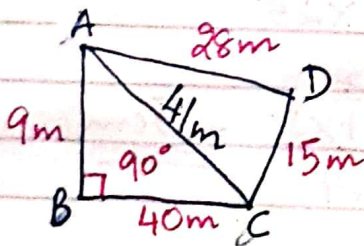 A
28m
D
9m
41m
90°
15m
B
40m
C